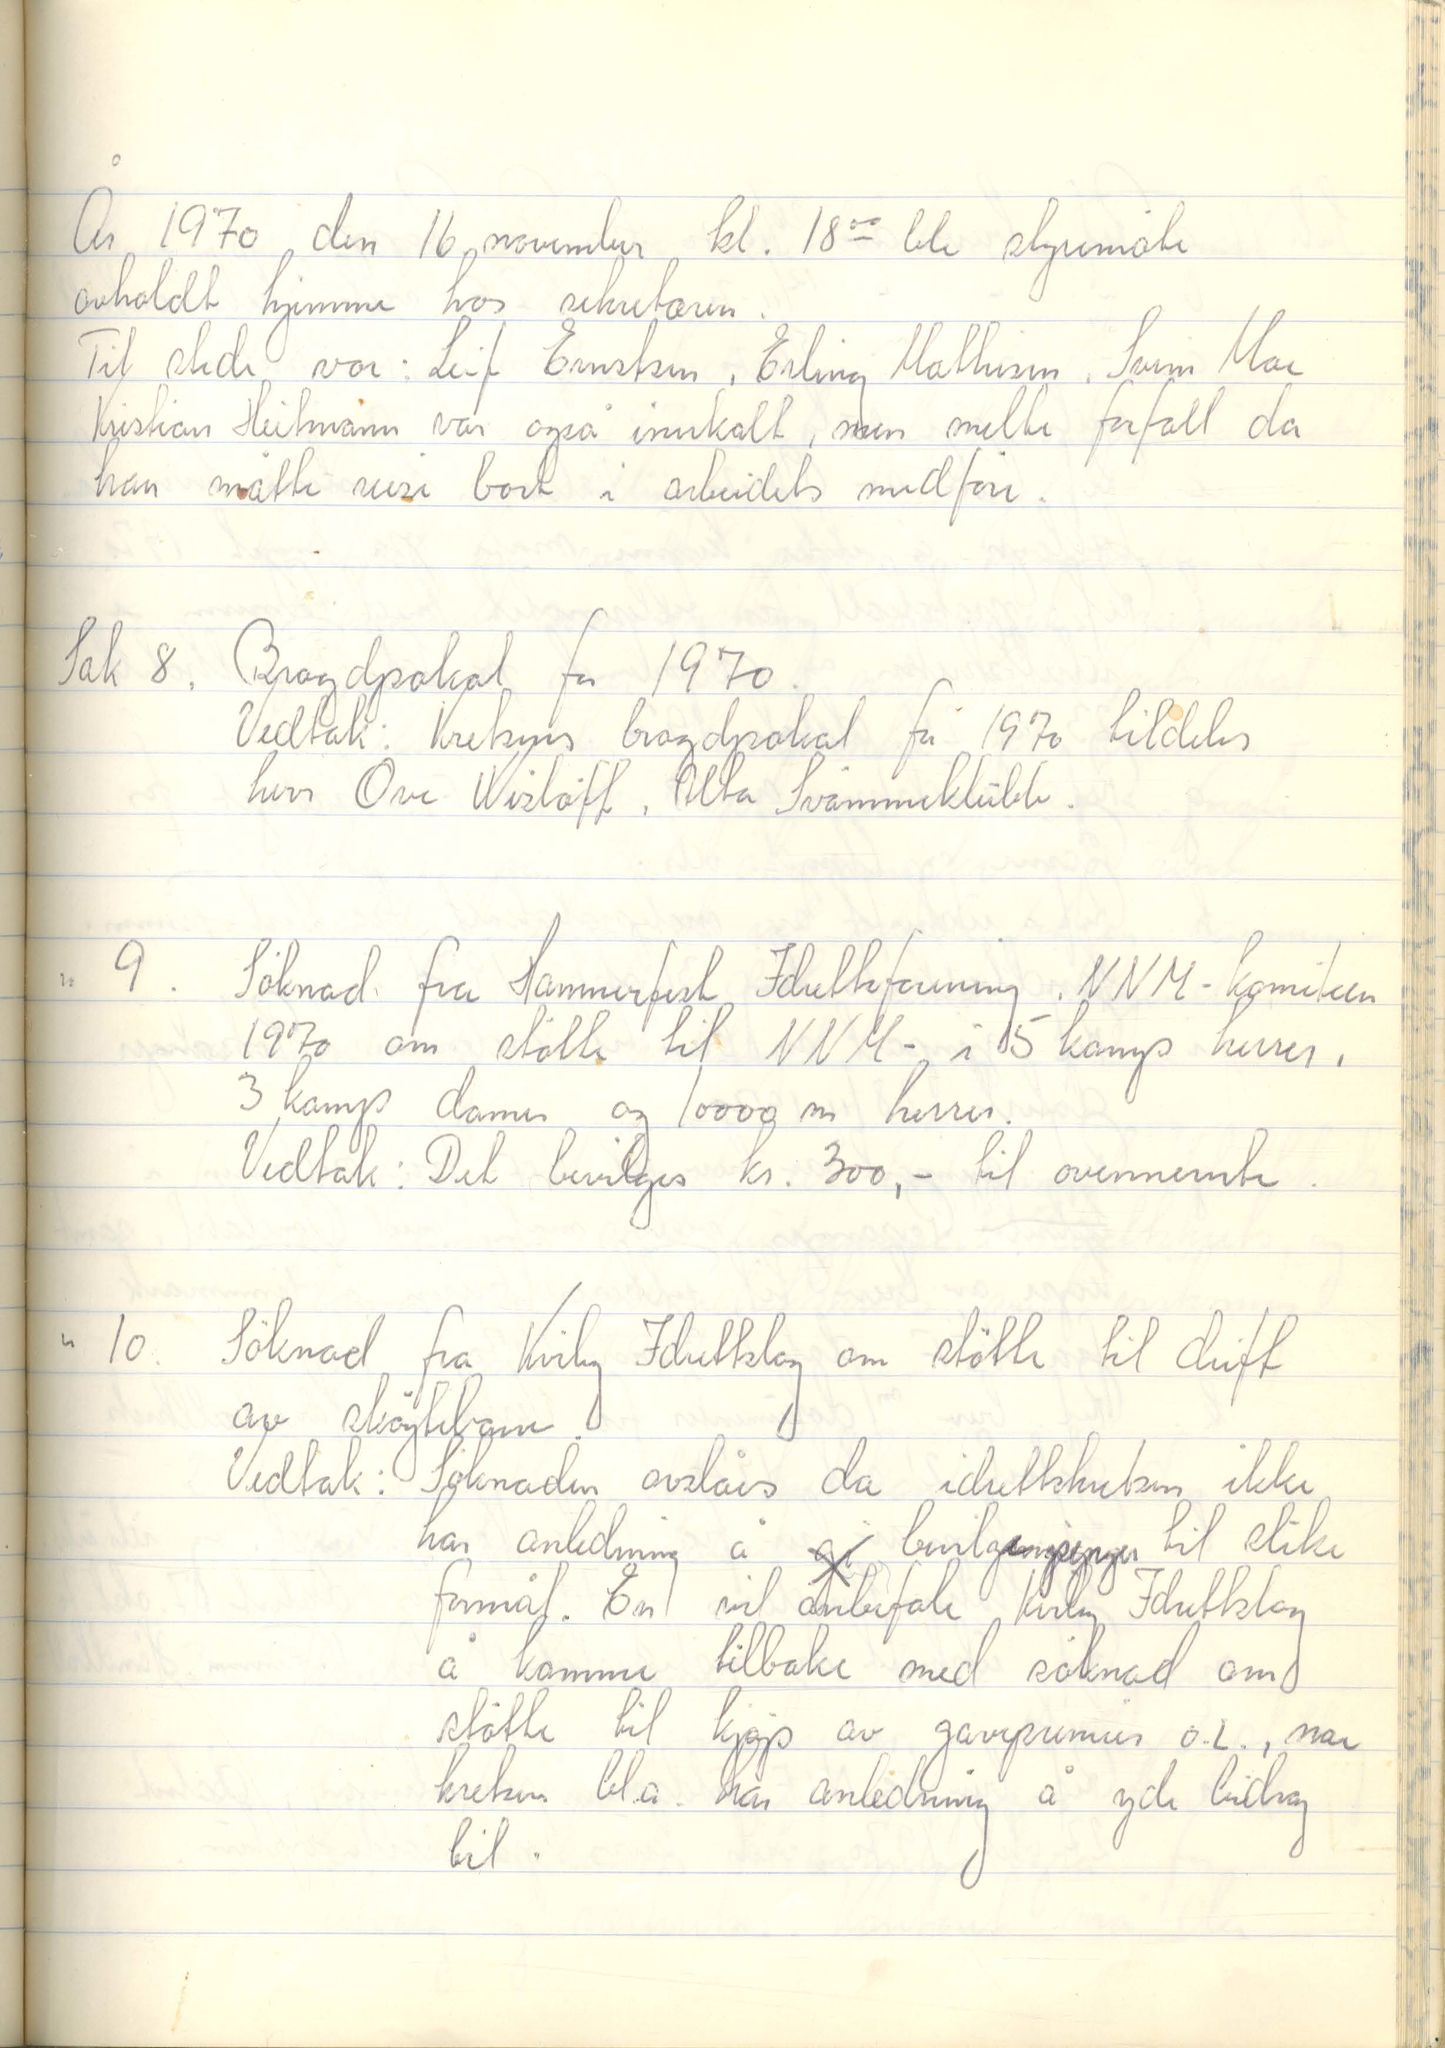 År 1970 den 16 november kl. 18⁰⁰ ble styremöte
avholdt hjemme hos sekretæren.
Til stede var: Leif Ernstsen, Erling Mathisen, Svein Moe
Kristian Heitmann var også innkalt, men melte forfall da
han måtte reise bort i arbeidets medföre.
Sak 8. Bragdpokal for 1970.
Vedtak: Kretsens bragdpokal for 1970 tildeles
herr Ove Wislöff, Alta Svömmeklubb.
" 9. Söknad fra Hammerfest Idrettsforening, NNM-komiteen
1970 om stötte til NNM- i 5 kamp herrer,
3 kamp damer og 10000 m herrer.
Vedtak: Det bevilges kr. 300,- til ovennevnte.
" 10. Söknad fra Kviby Idrettslag om stötte til drift
av sköytebane.
Vedtak: Söknaden avslåes da idrettskretsen ikke
har anledning å gi bevilgninger til slike
formål. En vil anbefale Kviby Idrettslag
å komme tilbake med söknad om
stötte til kjöp av gavepremier o.l., noe
kretsen bl.a. har anledning å yde bidrag
til.